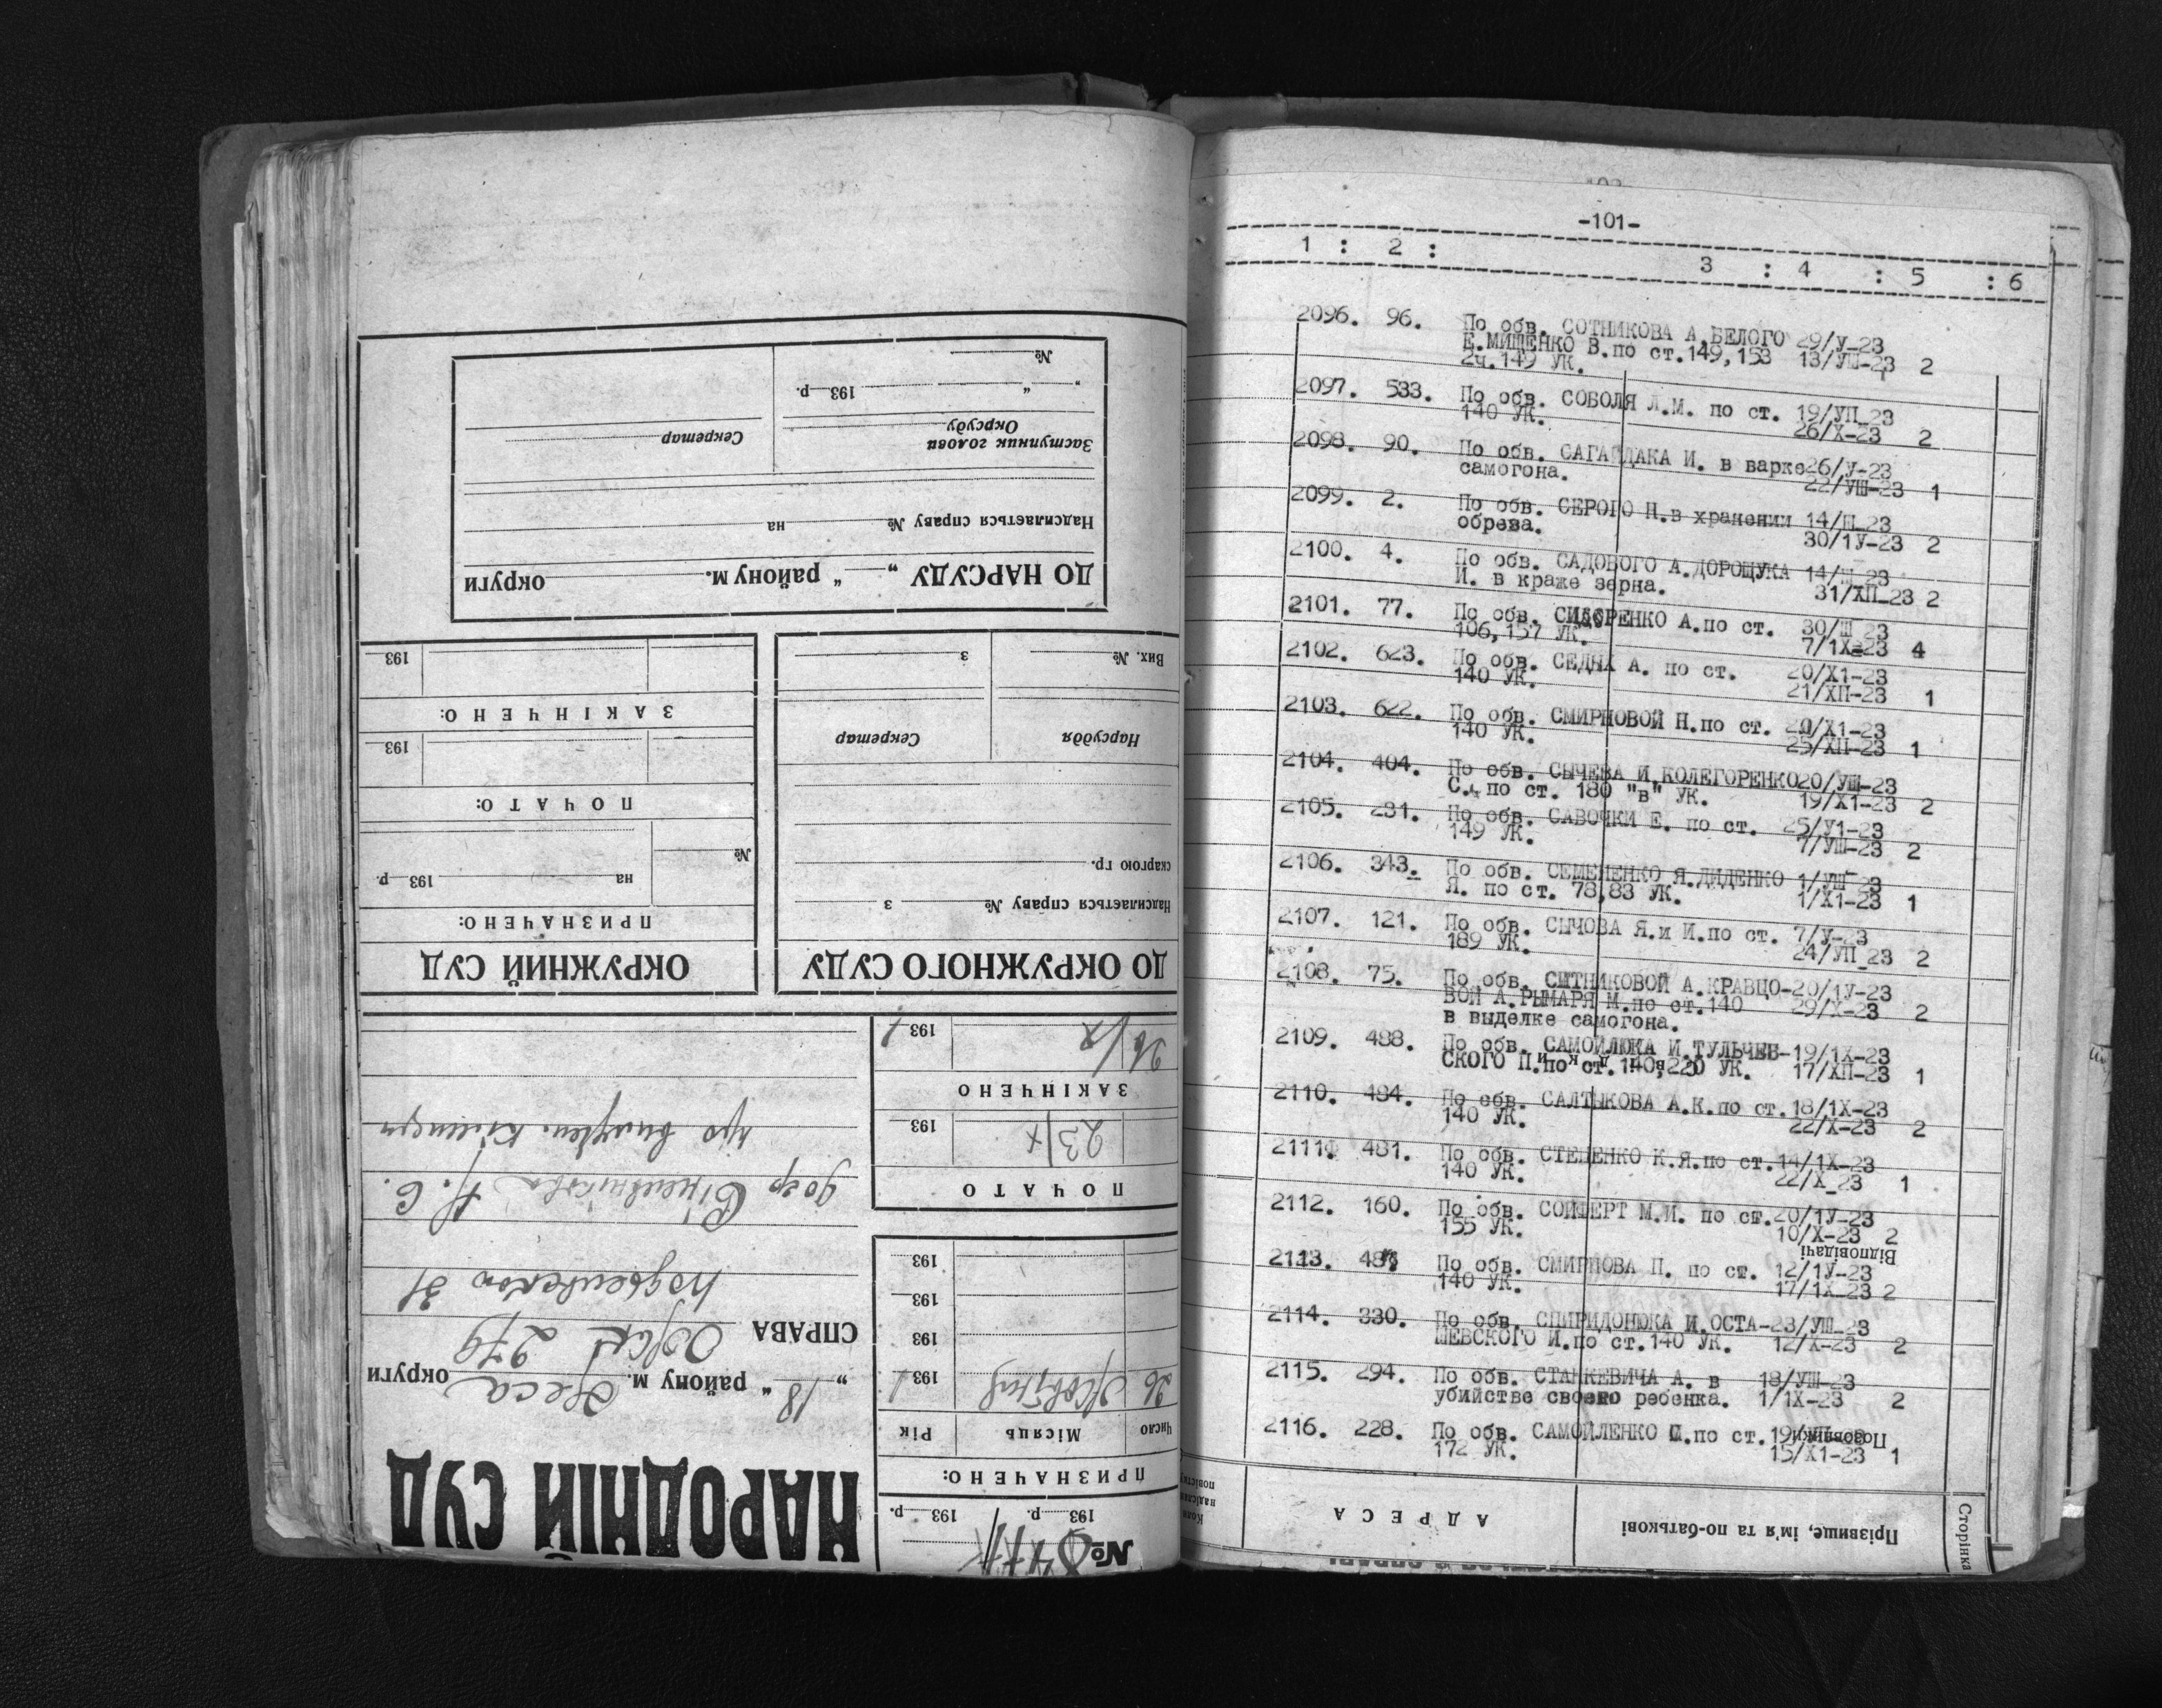 №
" " 193 р.
Заступник голови
Окрсуду
Секретар
Надсилається справу № на
ДО НАРСУДУ „ " району м. округи
Вих. № з
193
ЗАКІНЧЕНО:
Нарсуддя Секретар
193
ПОЧАТО:
№
на 193 р.
скаргою гр.
Надсилається справу № з
ПРИЗНАЧЕНО:
ДО ОКРУЖНОГО СУДУ
ОКРУЖНИЙ СУД
26/X 193 1
ЗАКІНЧЕНО
23/X 193
ПОЧАТО
193
193
193
26 193 1
Число Місяць Рік
ПРИЗНАЧЕНО:
193 р. 193 р.
№
про
до гр. Н. С.
31
СПРАВА 279
„ 18 " району м. округи
НАРОДНІЙ СУД
-101-
1 : 2 : 3 : 4 : 5 : 6
2096. 96. По обв. СОТНИКОВА А.БЕЛОГО 29/У-23
Е.МИЩЕНКО В.по ст.149,153 13/УШ-23 2
2ч.149 УК.
2097. 533. По обв. СОБОЛЯ Л.М. по ст. 19/УП_23
140 УК. 26/Х-23 2
2098. 90. По обв. САГАЙДАКА И. в варке 26/У-23
самогона. 22/УШ-23 1
2099. 2. По обв. СЕРОГО Н.в хранении 14/Ш_23
обреза. 30/1У-23 2
2100. 4. По обв. САДОВОГО А.ДОРОЩУКА 14/Ш_23
И. в краже зерна. 31/ХП_23 2
2101. 77. По обв. СИДОРЕНКО А.по ст. 30/Ш_23
106,157 УК. 7/1Х-23 4
2102. 623. По обв. СЕДЫХ А. по ст. 20/Х1-23
140 УК. 21/ХП-23 1
2103. 622. По обв. СМИРНОВОЙ Н.по ст. 20/Х1-23
140 УК. 25/ХП-23 1
2104. 404. По обв. СЫЧЕВА И.КОЛЕГОРЕНКО 20/УШ-23
С. по ст. 180 "в" УК. 19/Х1-23 2
2105. 231. По обв. САВОЧКИ Е. по ст. 25/У1-23
149 УК. 7/УШ-23 2
2106. 343. По обв. СЕМЕНЕНКО Я.ДИДЕНКО 1/УШ-23
Я. по ст. 78,83 УК. 1/Х1-23 1
2107. 121. По обв. СЫЧОВА Я.и И.по ст. 7/У-23
189 УК. 24/УП_23 2
2108. 75. По обв. СЫТНИКОВОЙ А.КРАВЦО- 20/1У-23
ВОЙ А.РЫМАРЯ М.по ст.140 29/Х-23 2
в выделке самогона.
2109. 488. По обв. САМОЙЛЮКА И.ТУЛЬЧЕВ- 19/1Х-23
СКОГО П.по ст.140,220 УК. 17/ХП-23 1
2110. 484. По обв. САЛТЫКОВА А.К.по ст. 18/1Х-23
140 УК. 22/Х-23 2
2111. 481. По обв. СТЕПЕНКО К.Я.по ст. 14/1Х-23
140 УК. 22/Х_23 1
2112. 160. По обв. СОЙФЕРТ М.И. по ст. 20/1У-23
155 УК. 10/Х-23 2
Відповідачі
2113. По обв. СМИРНОВА П. по ст. 12/1У-23
140 УК. 17/1Х-23 2
2114. 330. По обв. СПИРИДОНЮКА И.ОСТА- 23/УШ_23
ШЕВСКОГО И.по ст.140 УК. 12/Х-23 2
2115. 294. По обв. СТАНКЕВИЧА А. в 18/УШ-23
убийстве своего ребенка. 1/1Х-23 2
2116. 228. По обв. САМОЙЛЕНКО по ст.
172 УК. 15/Х1-23 1
Позовники
Сторінка
Прізвище, ім'я та по-батькові
АДРЕСА
Коли надіслано повістку